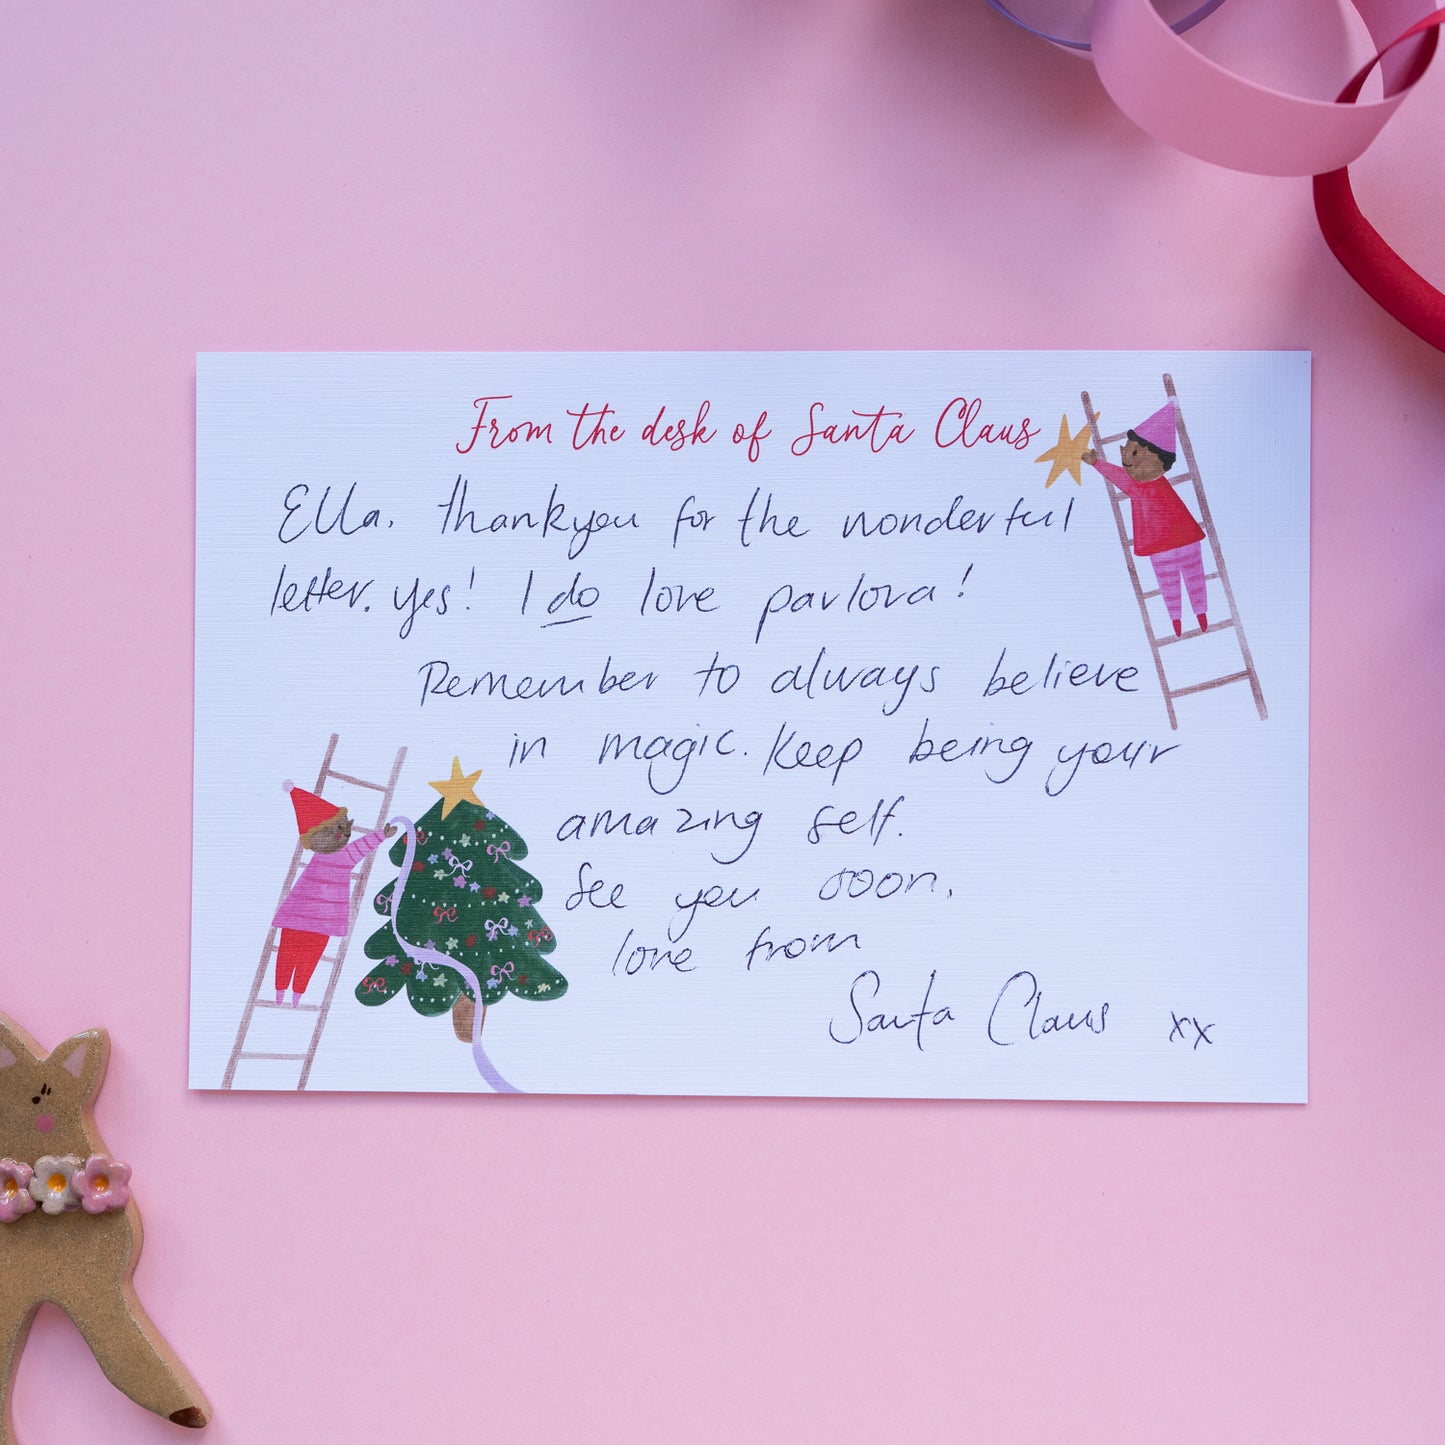 From the desk of Santa Claus
Ella. thankyou for the wonderful
letter. Yes! I do love pavlova!
Remember to always believe
in magic. Keep being your
amazing self.
See you soon.
love from
Santa Claus xx